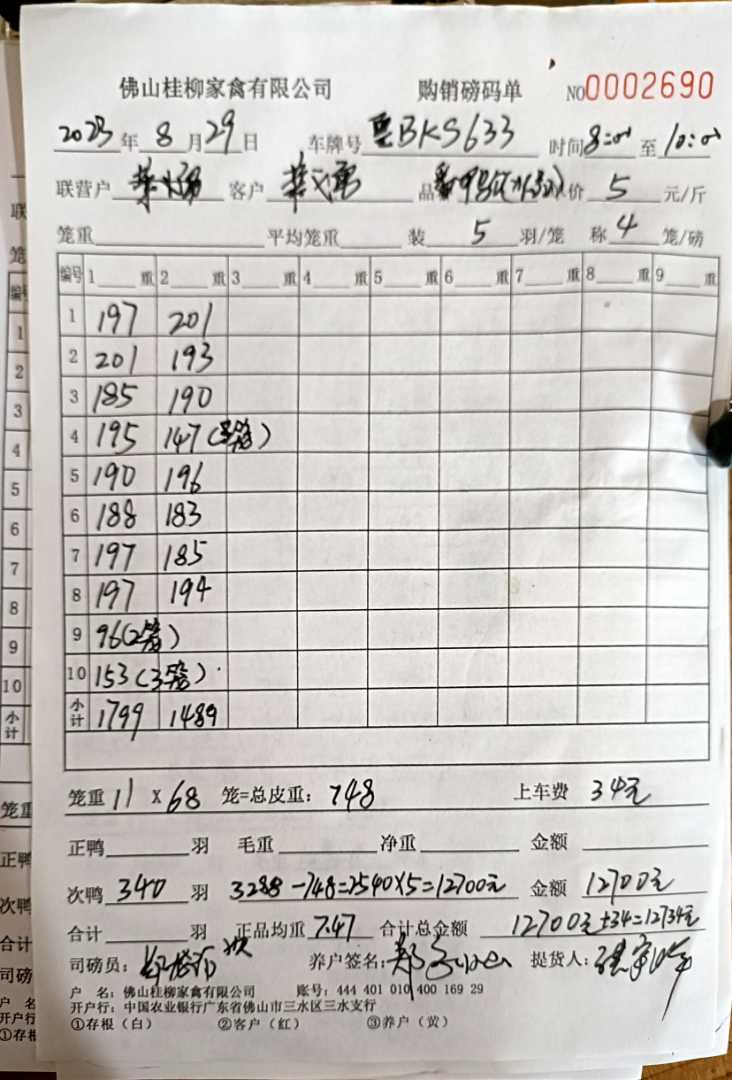 佛山桂柳家禽有限公司 购销磅码单 NO0002690
2023年8月29日 车牌号 粤BKS633 时间8:00至10:00
联营户 客户 品 价 5 元/斤
笼重 平均笼重 装 5 羽/笼 称 4 笼/磅
编号 1 重 2 重 3 重 4 重 5 重 6 重 7 重 8 重 9 重
1 197 201
2 201 193
3 185 190
4 195 147(3笼)
5 190 196
6 188 183
7 197 185
8 197 194
9 96(2笼)
10 153(3笼)
小计 1799 1489
笼重 11 X 68 笼=总皮重: 748 上车费 34元
正鸭 羽 毛重 净重 金额
次鸭 340 羽 3288-748=2540×5=12700元 金额 12700元
合计 羽 正品均重 7.47 合计总金额 12700元+34=12734元
司磅员: 次 养户签名: 提货人:
户 名: 佛山桂柳家禽有限公司 账号: 444 401 010 400 169 29
开户行: 中国农业银行广东省佛山市三水区三水支行
①存根(白) ②客户(红) ③养户(黄)